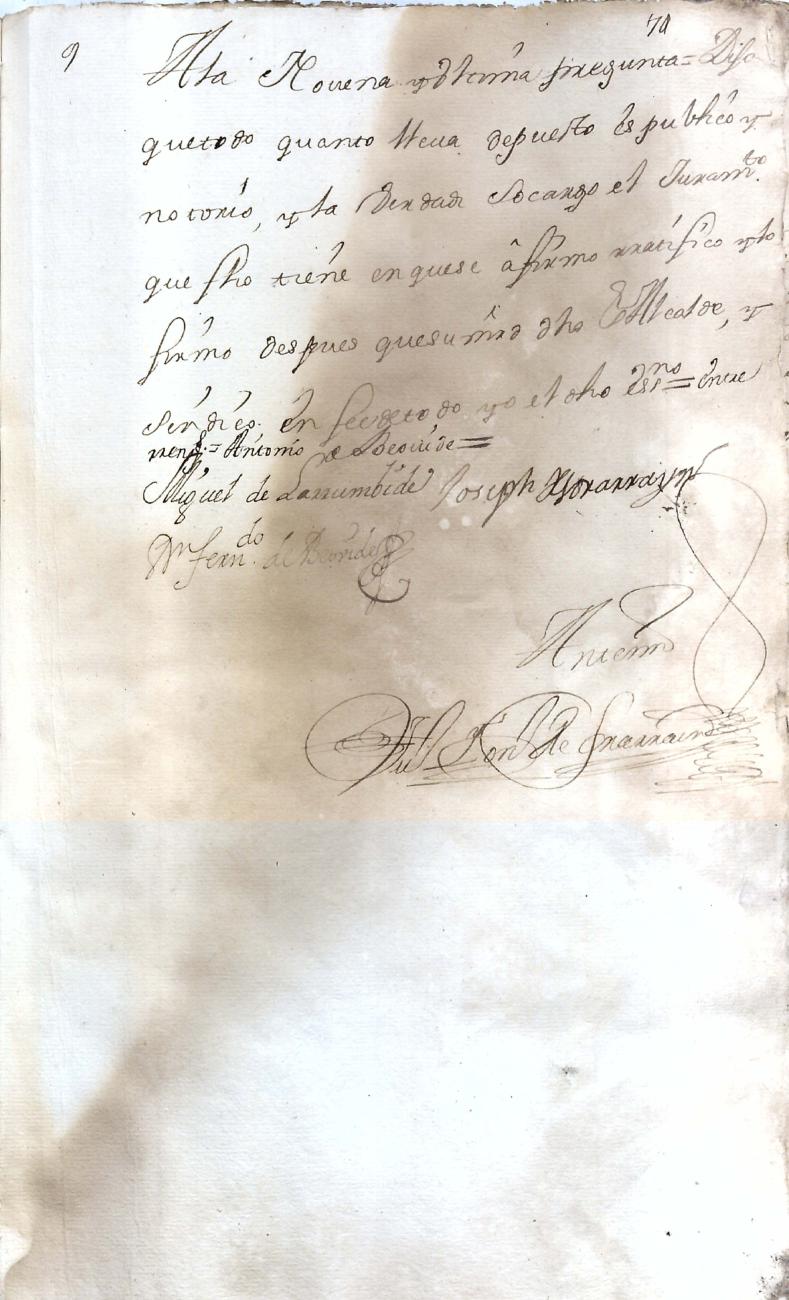 70
9 A la Novena y Vltima pregunta = Dijo
que todo quanto lleua depuesto es publico y
notorio, y la Verdad so cargo el Juram.to
que fho tiene en que se afirmo rratifico y lo
firmo despues que su mrd dho Alcalde, y
sindico en fee de todo yo el dho ess.no = entre
rreng.s = Antonio de Beouide =
Miguel de Larrumbide Joseph
Dn fern.do de Beovide
Antemi
de